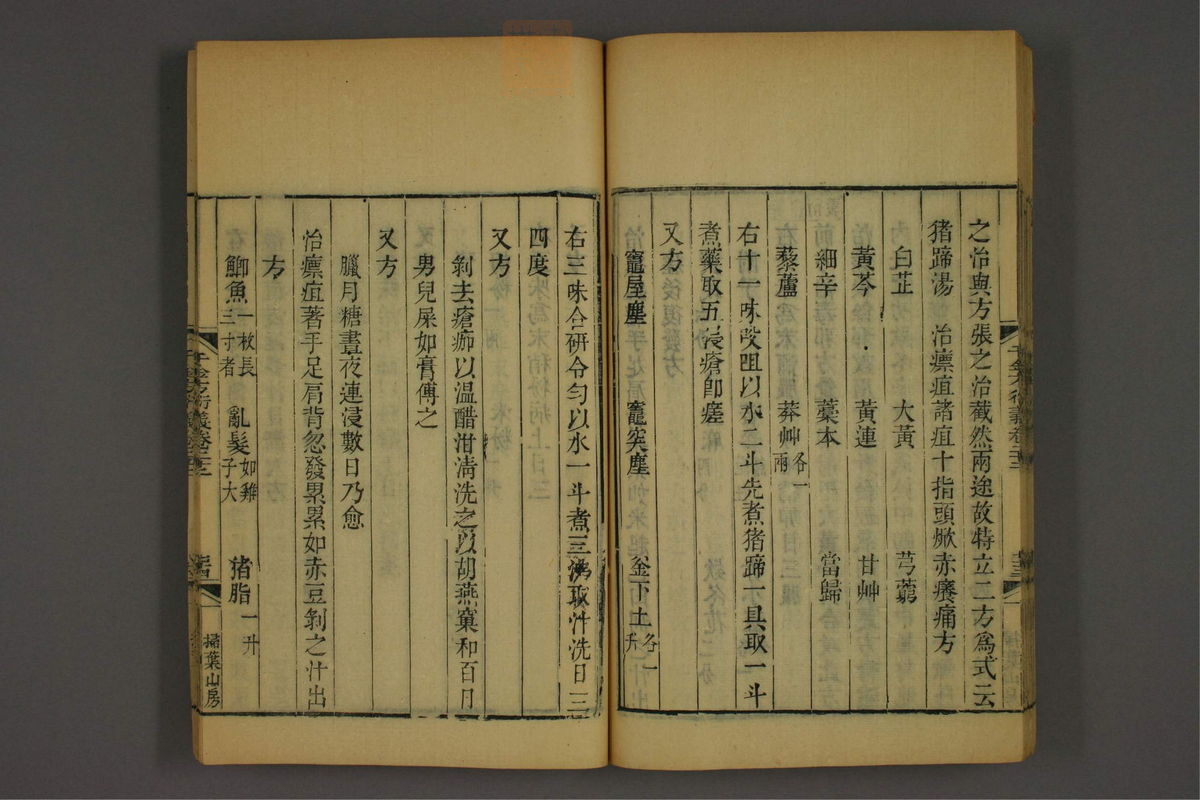 之治與方張之治截然兩途故特立二方為式云
豬蹄湯 治瘭疽諸疽十指頭焮赤癢痛方
白芷 大黃 芎藭
黃芩 黃連 甘艸
細辛 藁本 當歸
藜蘆 莽艸各一兩
右十一味㕮咀以水二斗先煮猪蹄一具取一斗
煮藥取五浸瘡即瘥
又方
竈屋塵 竈突塵 釜下土各一升
右三味合研令勻以水一斗煮三沸取汁洗日三
四度
又方
剝去瘡痂以溫醋泔清洗之以胡燕窠和百日
男兒屎如膏傅之
又方
臘月糖晝夜連浸數日乃愈
治瘭疽著手足肩背忽發累累如赤豆剝之汁出
方
鯽魚一枚長三寸者 亂髮如雞子大 猪脂一升
千金方衍義卷二十二
掃葉山房